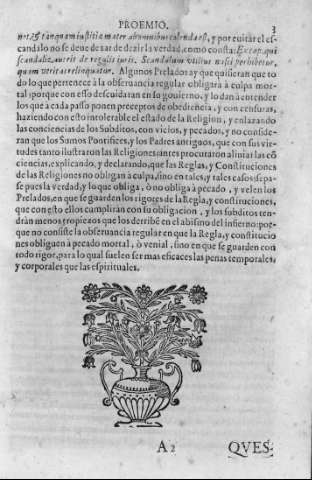 PROEMIO. 3
not. & tanquam iustitiæ mater ab omnibus colenda est, y por euitar el es-
candalo no se deue dexar de dezir la verdad, como consta: Ex cap. qui
scandalizauerit de regulis iuris. Scandalum vtilius nasci perhibetur,
quam veritas relinquatur. Algunos Prelados ay que quisieran que to
do lo que pertenece à la obseruancia regular obligara à culpa mor-
tal: porque con esso descuidaran en su gouierno, y lo dan à entender
los que à cada passo ponen preceptos de obediencia, y con censuras,
haziendo con esto intolerable el estado de la Religion, y enlazando
las conciencias de los Subditos, con vicios, y pecados, y no conside-
ran que los Sumos Pontifices, y los Padres antiguos, que con sus vir-
tudes tanto ilustraron las Religiones: antes procuraron aliuiar las cõ
ciencias, explicando, y declarando, que las Reglas, y Constituciones
de las Religiones no obligan à culpa, sino en tales, y tales casos: sepa-
se pues la verdad, y lo que obliga, ò no obliga à pecado, y velen los
Prelados, en que se guarden los rigores de la Regla, y constituciones,
que con esto ellos cumpliràn con su obligacion, y los subditos ten-
dràn menos tropieços que los derribẽ en el abismo del infierno: por-
que no consiste la obseruancia regular en que la Regla, y constitucio
nes obliguen à pecado mortal, ò venial, sino en que se guarden con
todo rigor, para lo qual suelen ser mas eficaces las penas temporales,
y corporales que las espirituales.
A 2 QVES-